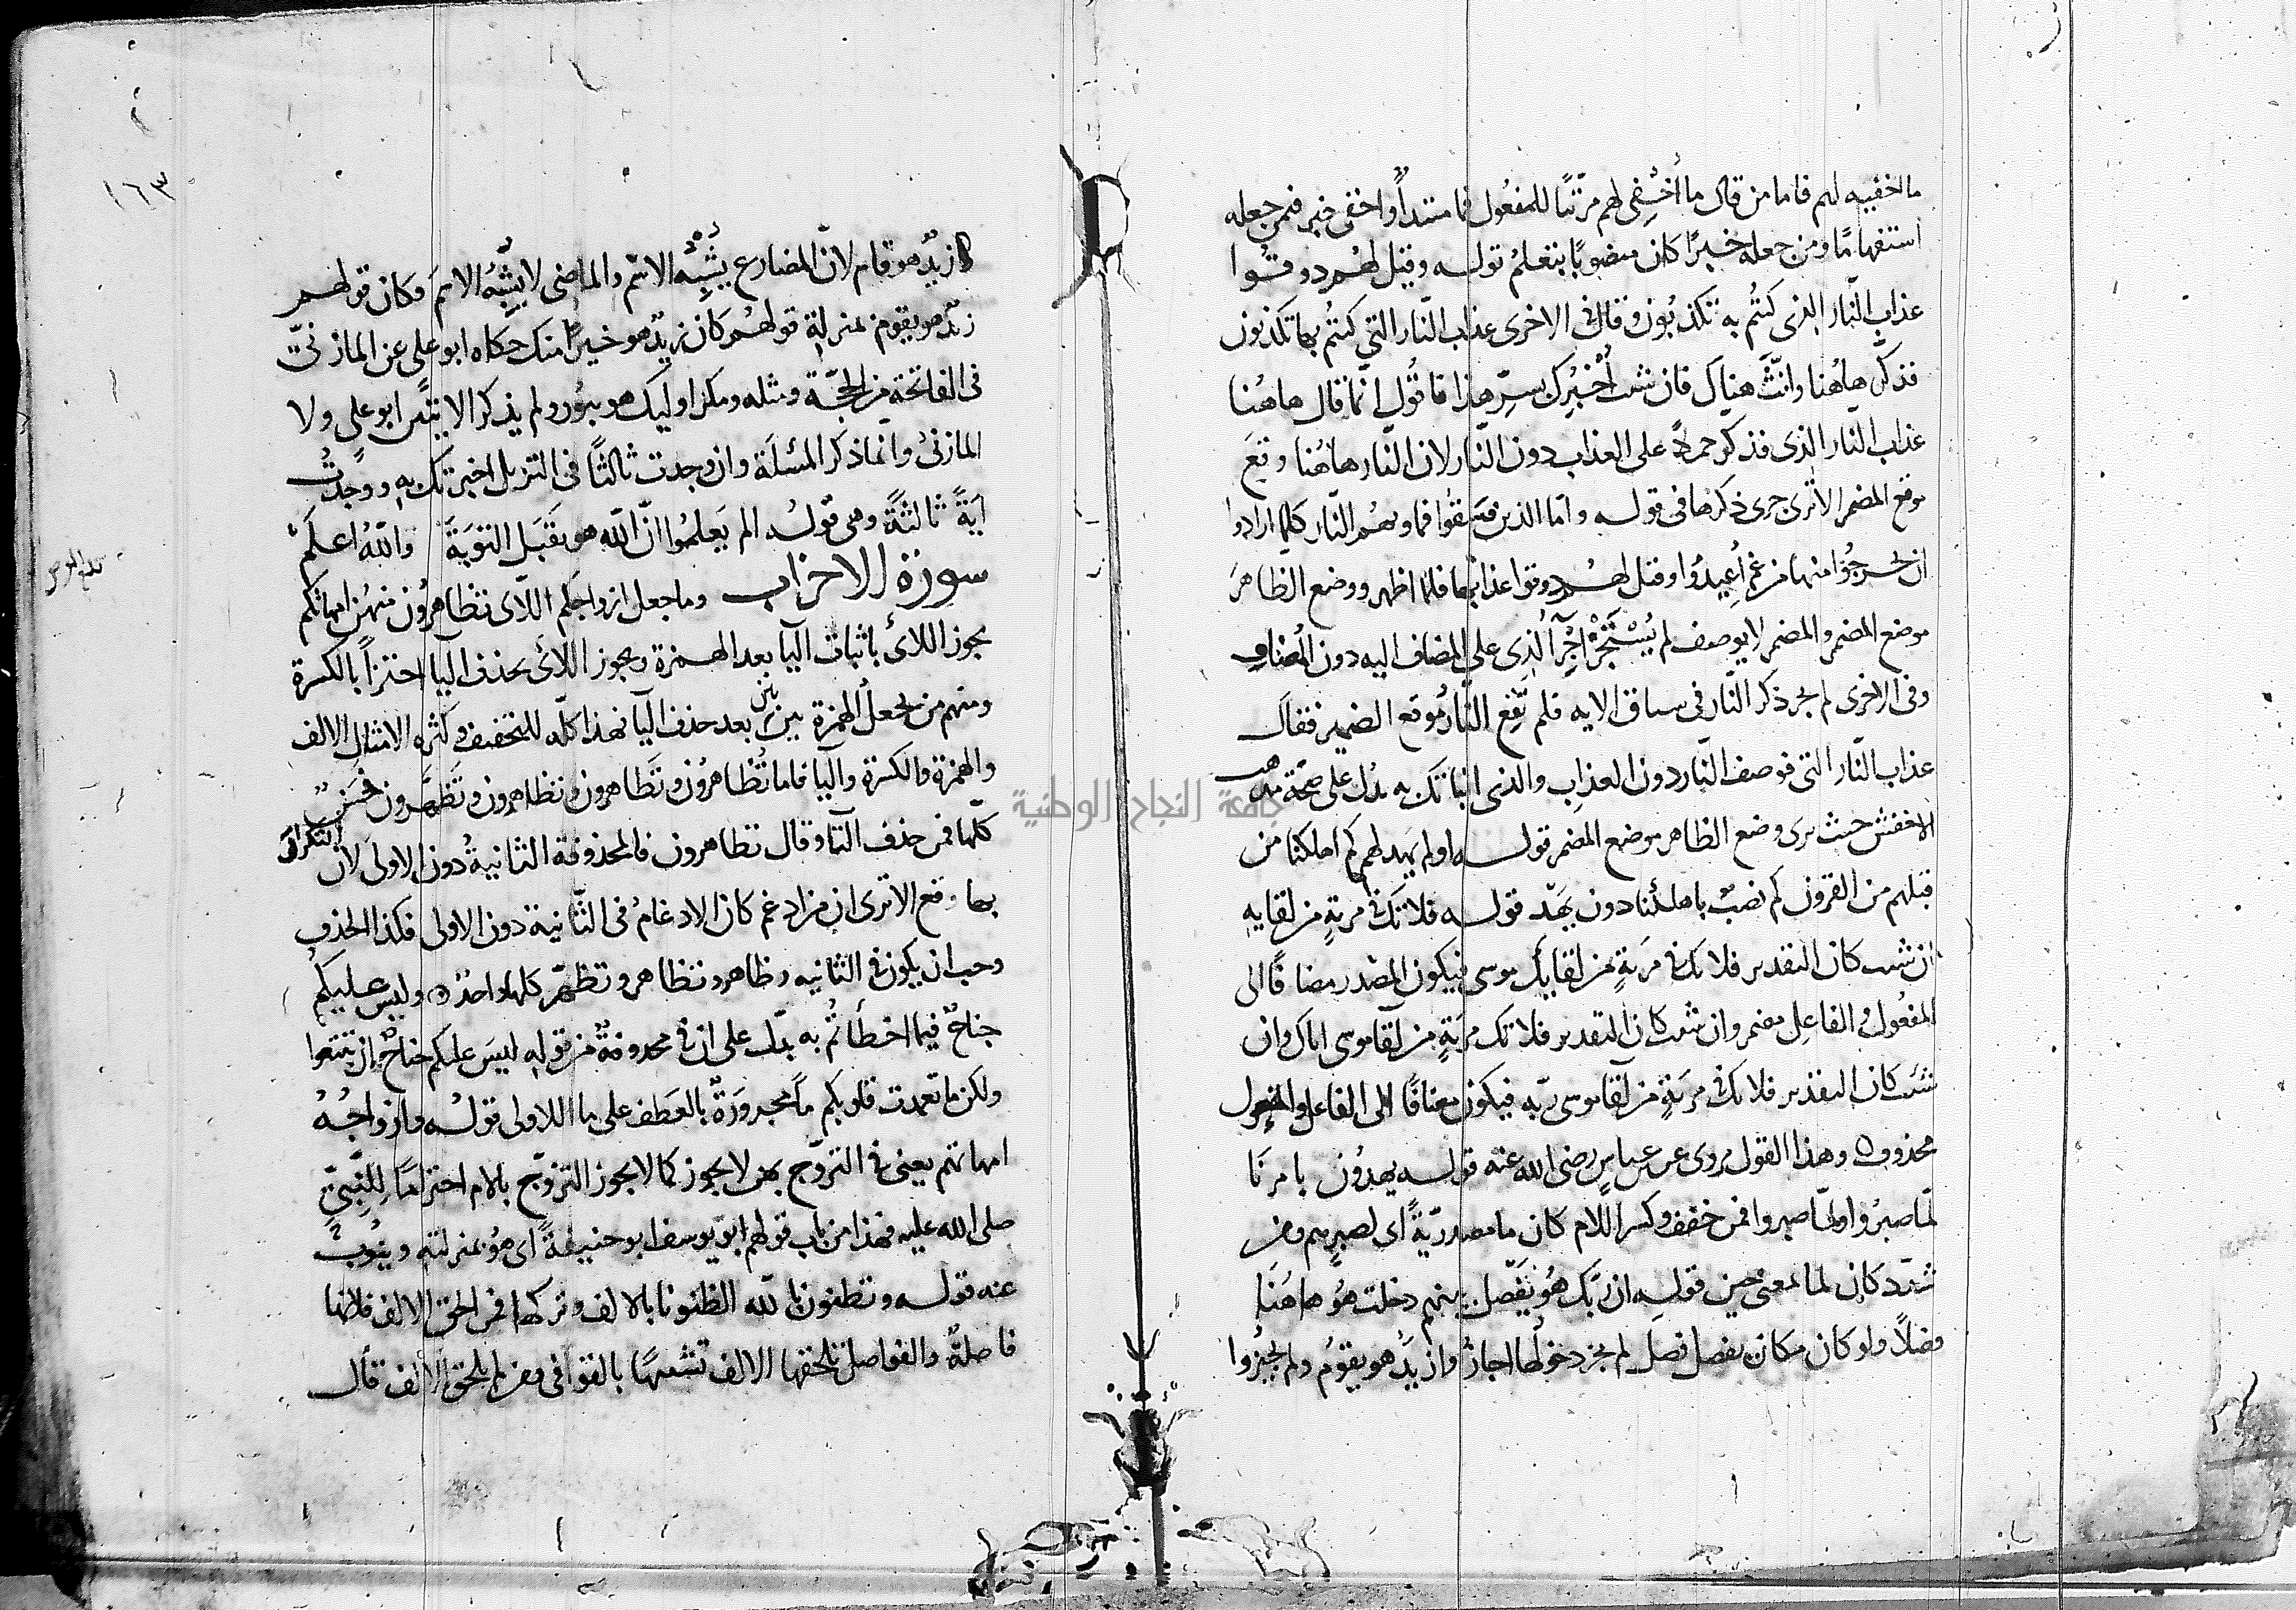 ما اخفيه لهم فاما من قال ما أُخْفِي لهم مرتبًا للمفعول فما مبتدأٌ واخفى خبر فمن جعله
استفهامًا ومن جعله خبرًا كان منصوبًا بتعلمُ قوله وقيل لهُم ذوقُوا
عذاب النّار الذى كنتُم به تكذبُون وقال فى الاخرى عذاب النّار التي كنتُم بها تكذبون
فذكّر هاهُنا وانّث هناك فان شئت أُخْبِرك بسِرّ هذا فاقُول انّما قال هاهُنا
عذاب النّار الذى فذكر حملاً على العذاب دون النّار لان النّار هاهُنا وقعَ
موقع المضمر الا ترى جرى ذكرها فى قوله وامّا الذين فسَقُوا فماويهُم النّار كلما ارادوا
ان يخرجُوا منها من غم أُعِيدُوا وقيل لهُم ذوقوا عذابها فلمّا اظهر ووضع الظاهرَ
موضع المضمر والمضمر لا يوصف لم يُسْتَجَز اجرآ الذى على المضاف اليه دون المُضاف
وفى الاخرى لم يجر ذكر النّار فى سياق الايه فلم تَقع النّارُ موقع الضمير فقال
عذاب النّار التى فوصف النّار دون العذاب والذى انباتك به يدُل على صحّة مذهب
الاخفش حيث يرى وضع الظاهر موضع المضمر قوله اولم يَهد لهم كم اهلكنا من
قبلهم من القرون كم نصبٌ باهلكنا دون يَهد قوله فلا تك فى مريةٍ من لقايه
ان شئت كان التقدير فلا تك فى مريَةٍ من لقايك موسى فيكون المصدر مضافًا الى
المفعُول والفاعِل مضمر وان شئت كان التقدير فلا تك فى مريَةٍ من لقآ موسى اياك وان
شئت كان التقدير فلا تك فى مريَةٍ من لقآ موسى ربّه فيكون مضافًا الى الفاعل والمفعول
محذوف وهذا القول مروى عن عباسٍ رضى الله عنه قوله يهدُون بامرنَا
لمّا صبرُوا ولمّا صبروا فمن خفف وكسر اللام كان ما مصدريّةً اى لصبرِهم ومن
شدّد كان لما بمعنى حين قوله ان ربّك هُو يَفْصل بينهم دخلت هُو هاهُنا
فصلاً ولو كان مكان يفصل فصل لم يجز دخولها اجازُوا زيدٌ هو يقوُم ولم يُجيزُوا
كان زيدٌ هو قام لانّ المضارع يُشْبِهُ الاسم والماضى لا يشبِهُ الاسمَ وكان قولهم
زيدٌ هو يقوم بمنزلة قولهُم كان زيدٌ هو خيرًا منك حكاه ابو على عن المازنىّ
فى الفاتحة من الحُجّة ومثله ومكر اوليك هو يبُور ولم يذكر الايتين ابو على ولا
المازنىُ وانّما ذكر المسئلَة وان وجدت ثالثًا فى التنزيل اخبرتك به ووجدتُ
ايَةً ثالثةً وهى قولُه الم يَعلمُوا انّ الله هو يَقْبَل التوبَةَ واللّهُ اعلَمْ
سورة الاحزاب وما جعل ازواجكم اللّاى تظاهرُون منهُن امهاتكم
يجوز اللائى باثبات اليآ بعد الهمزة ويجوز اللاىِ بحذف اليا اجتزاً بالكسرة
ومنهم من يجعل الهمزة بين بين بعد حذف اليآ فهذا كلّه للتخفيف وكثرة الامثال الالف
والهمزة والكسرة واليا فاما تُظاهرُون وتَظاهرون وتظاهرون وتَظَهَّرون فحَسنٌ
كلّها فمن حذف التآ وقال تظاهرون فالمحذوفة الثانيةُ دون الاولى لان التكرارَ
بها وقع الا ترى ان من ادغم كان الادغامُ فى الثّانية دون الاولى فكذا الحذف
وجب ان يكون فى الثانيه وظاهر وتظاهر وتظهّر كلها واحدٌ وليس عليكُم
جناحٌ فيما اخطأتُم به يدُلّ على ان فى محذوفةٌ من قوله ليسَ عليكم جناحٌ ان تبتغوا
ولكن ما تعمدت قلوبكم ما مجرورَةٌ بالعَطف على ما الاولى قولُه وازواجُهُ
امهاتهم يعنى فى التزوّج بهن لا يجوز كما لا يجوز التزوّج بالام احترامًا لِلنَّبيّ
صلى الله عليه فهذا من باب قولهم ابو يوسف ابو حنيفةً اى هُو بمنزلته وينُوبُ
عنه قوله وتظنون باللّه الظنونا بالالف وتركها فمن الحق الالف فلانها
فاصلةٌ والفواصل تلحقها الالف تشبيهًا بالقوافى ومن لم يلحق الالف قال
١٦٣
جامعة النجاح الوطنية